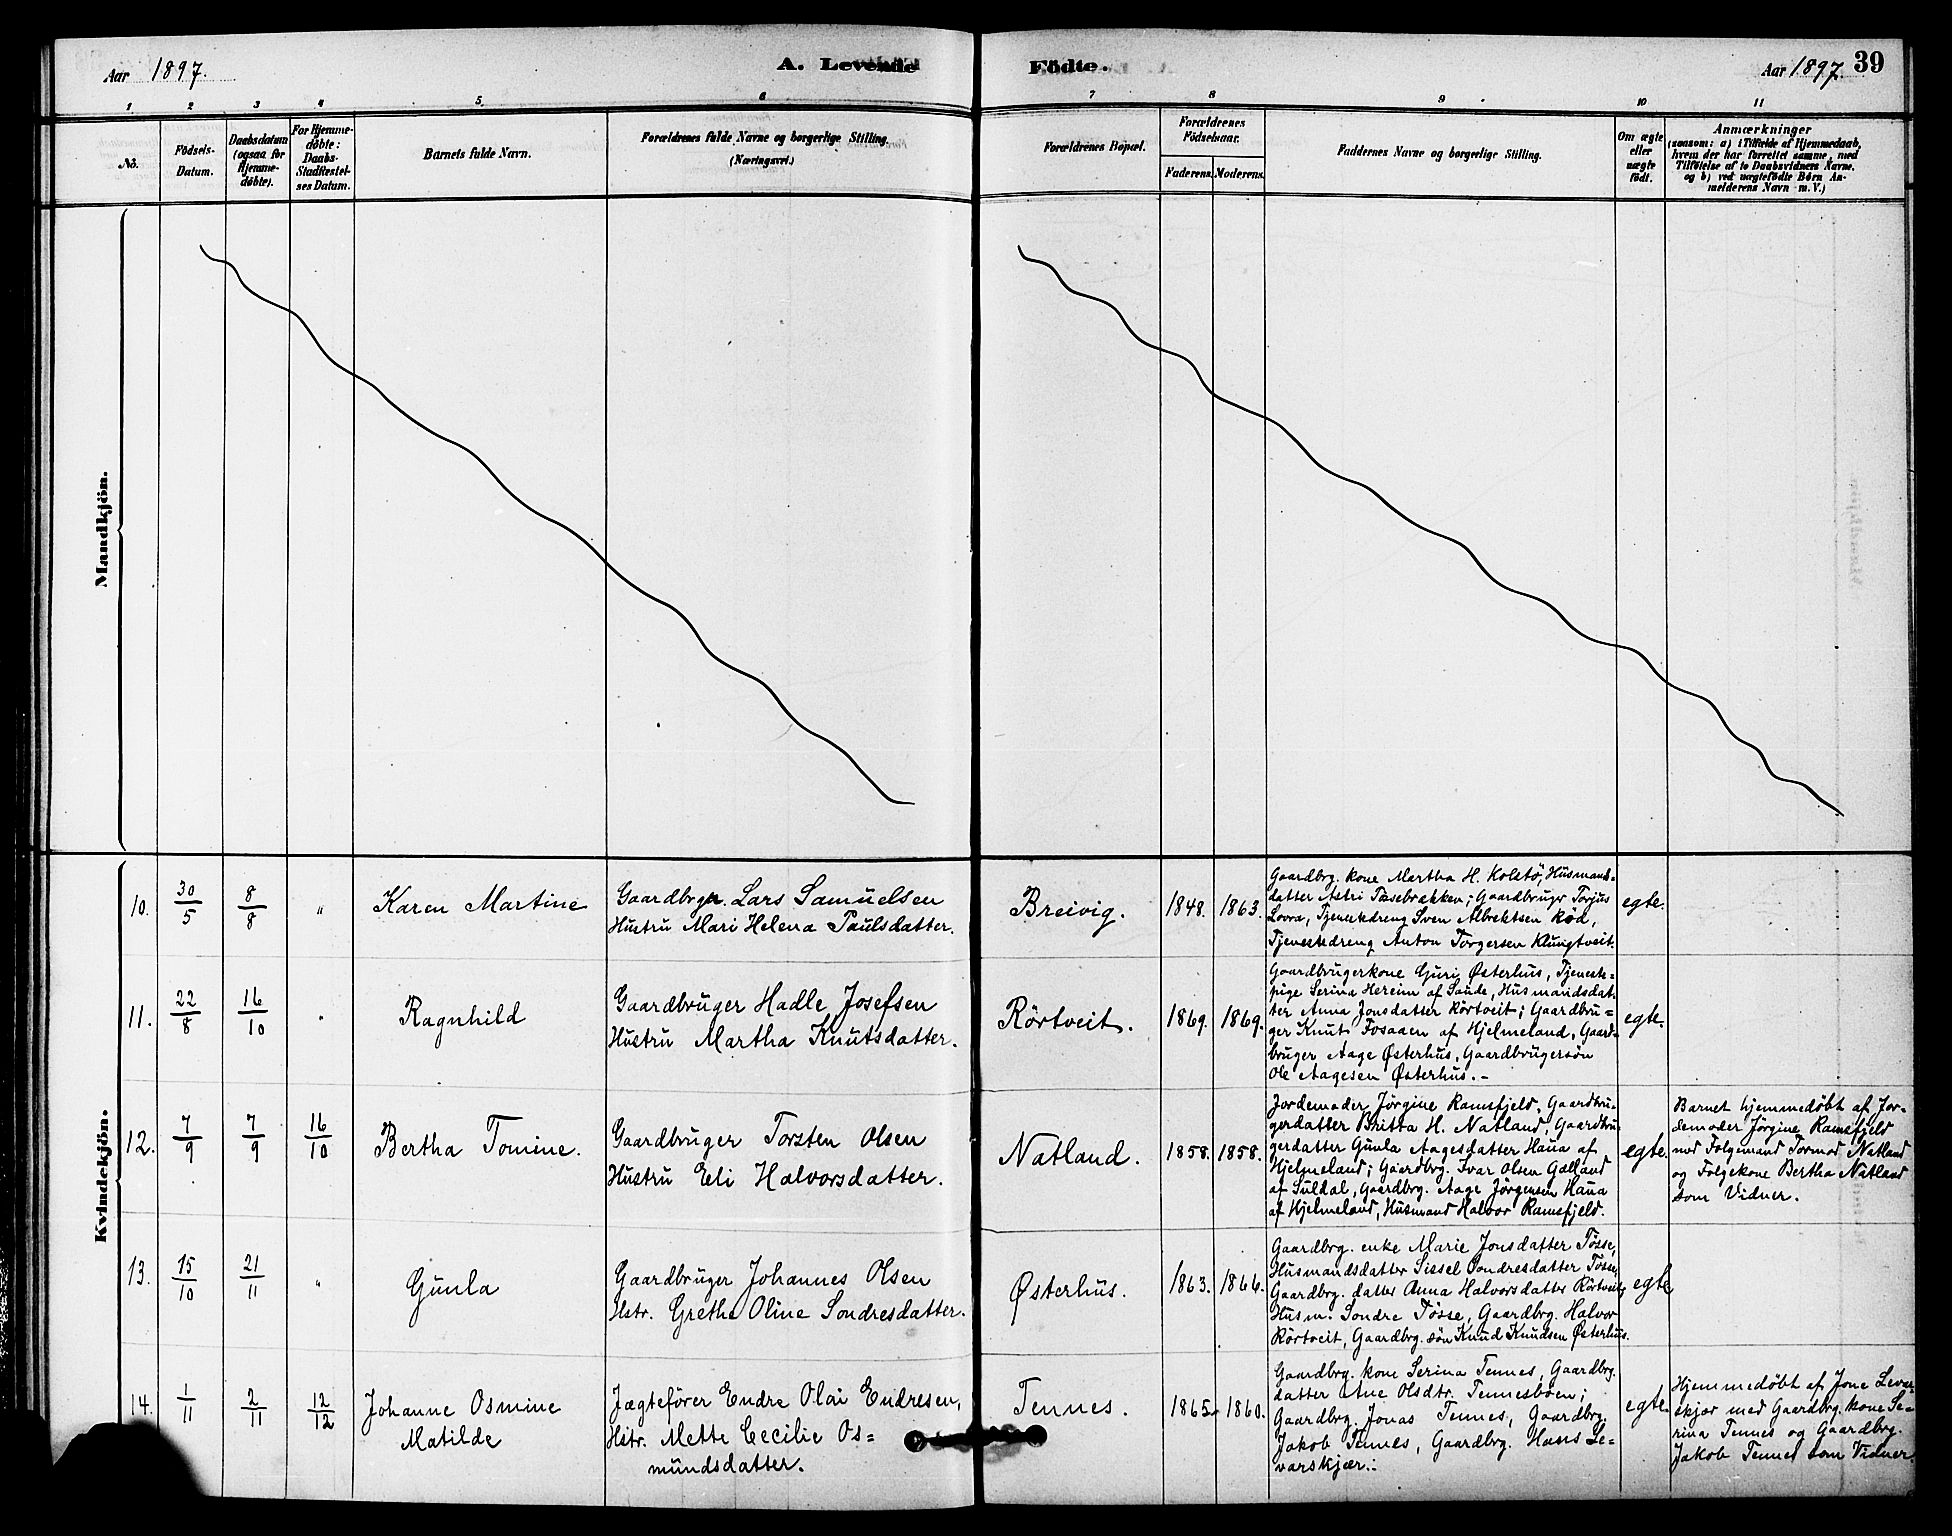 Aar 1897.
A. Levende
Födte.
Aar 1897. 39
1 2 3 4 5 6 7 8 9 10 11
No.
Födsels-
Datum.
Daabsdatum
(ogsaa for
Hjemme-
döbte).
For Hjemme-
döbte:
Daabs-
Stadfestel-
ses Datum.
Barnets fulde Navn.
Forældrenes fulde Navne og borgerlige Stilling.
(Næringsvei.)
Forældrenes Bopæl.
Forældrenes
Födselsaar.
Faderens. Moderens.
Faddernes Navne og borgerlige Stilling.
Om ægte
eller
uægte
födt.
Anmærkninger
(saasom: a) i Tilfælde af Hjemmedaab,
hvem der har forrettet samme, med
Tilföielse af to Daabsvidners Navne.
og b) ved uægtefödte Börn An-
melderens Navn m. V.)
Mandkjön.
Kvindekjön.
10.
30/5
8/8
"
Karen Martine
Gaardbrgr. Lars Samuelsen
Hustru Mari Helena Paulsdatter.
Breivig.
1848. 1863.
Gaardbrg. kone Martha H. Kolstö, Husmands-
datter Astri Tösebrekken; Gaardbruger Torjus
Lovra, Tjenestedreng Sven Albrektsen Röd,
Tjenestedreng Anton Torgersen Klungtveit.
egte.
11.
22/8
16/10
Ragnhild
Gaardbruger Hadle Josefsen
Hustru Martha Knutsdatter.
Rörtveit.
1869. 1869.
Gaardbrugerkone Guri Østerhus, Tjeneste-
pige Serina Hereim af Saude, Husmandsdat-
ter Anna Jonsdatter Rörtveit; Gaardbru-
ger Knut Fosaaen af Hjelmeland, Gaard-
bruger Aage Østerhus, Gaardbrugersön
Ole Aagesen Østerhus.-
egte.
12.
7/9
7/9
16/10
Bertha Tomine.
Gaardbruger Torsten Olsen
Hustru Eli Halvorsdatter.
Natland.
1858. 1858.
Jordemoder Jørgine Ramsfjeld, Gaardbru-
gerdatter Britta H. Natland, Gaardbru-
gerdatter Gunla Aagesdatter Haua af
Hjelmeland; Gaardbrg. Ivar Olsen Galland
af Suldal, Gaardbrg. Aage Jörgensen Haua
af Hjelmeland, Husmand Halvor Ramsfjeld.
egte.
Barnet hjemmedøbt af Jor-
demoder Jørgine Ramsfjeld
med Følgemand Tormod Natland
og Følgekone Bertha Natland
som Vidner.
13.
15/10
21/11
"
Gunla
Gaardbruger Johannes Olsen
Hstr. Grethe Oline Sondresdatter.
Østerhus.
1863. 1864.
Gaardbrg. enke Marie Jonsdatter Tösse,
Husmandsdatter Sissel Sondresdatter Tösse,
Gaardbrg. datter Anna Halvorsdatter Rörtveit;
Husm. Sondre Tösse, Gaardbrg. Halvor
Rörtveit, Gaardbrg. sön Knud Knudsen Østerhus.
egte
14.
1/11
2/11
12/12
Johanne Osmine
Matilde
Jægtefører Endre Olai Endresen,
Hstr. Mette Cecilie Os=
mundsdatter.
Tennes.
1865. 1860.
Gaardbrg. kone Serina Tennes, Gaardbrg.
datter Ane Olsdtr. Tennesböen;
Gaardbrg. Jonas Tennes, Gaardbrg.
Jakob Tennes, Gaardbrg. Hans Le=
varskjær.-
egte.
Hjemmedøbt af Jone Levar-
skjær med Gaardbrg. kone Se-
rina Tennes og Gaardbrg.
Jakob Tennes som Vidner.